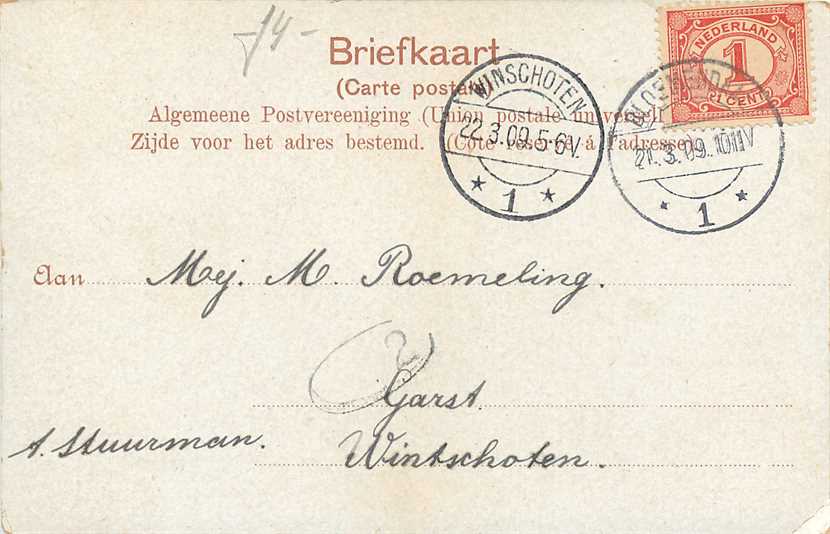 14-
Briefkaart
(Carte postale)
Algemeene Postvereeniging (Union postale universelle)
Zijde voor het adres bestemd. (Côté réservé à l'adresse)
WINSCHOTEN
22.3.09.5-6V.
1
21.3.09.
1
NEDERLAND
1
CENT
Aan Mej. M. Roemeling.
Garst.
A. Stuurman.
Wintschoten.